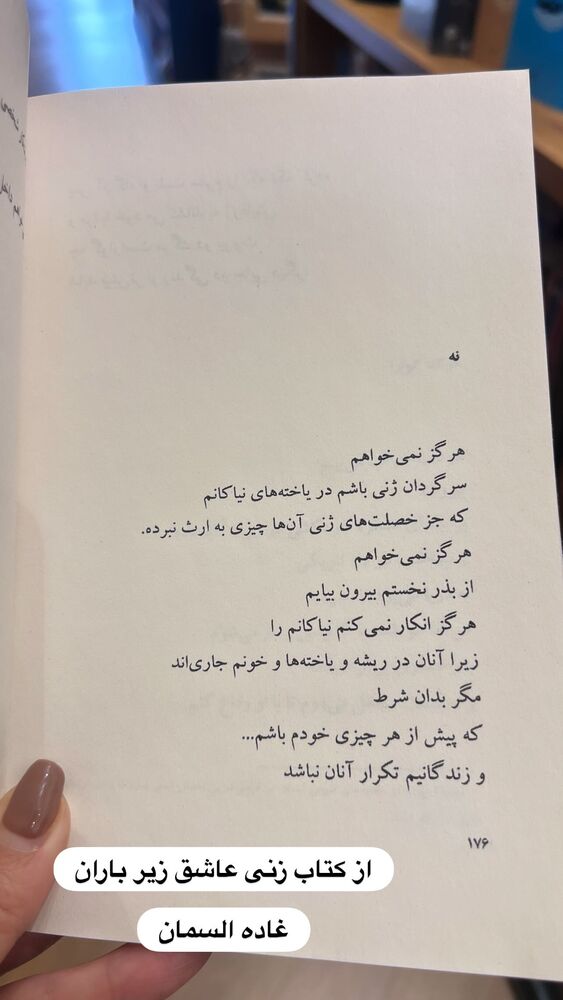 نه
هرگز نمی‌خواهم
سرگردان ژنی باشم در یاخته‌های نیاکانم
که جز خصلت‌های ژنی آن‌ها چیزی به ارث نبرده.
هرگز نمی‌خواهم
از بذر نخستم بیرون بیایم
هرگز انکار نمی‌کنم نیاکانم را
زیرا آنان در ریشه و یاخته‌ها و خونم جاری‌اند
مگر بدان شرط
که پیش از هر چیزی خودم باشم...
و زندگانیم تکرار آنان نباشد
۱۷۶
از کتاب زنی عاشق زیر باران
غاده السمان